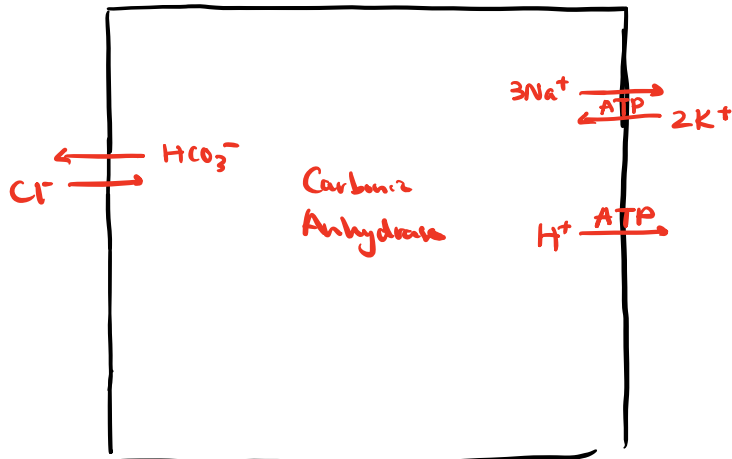 3Na⁺
ATP
2K⁺
HCO₃⁻
Cl⁻
Carbonic
Anhydrase
ATP
H⁺